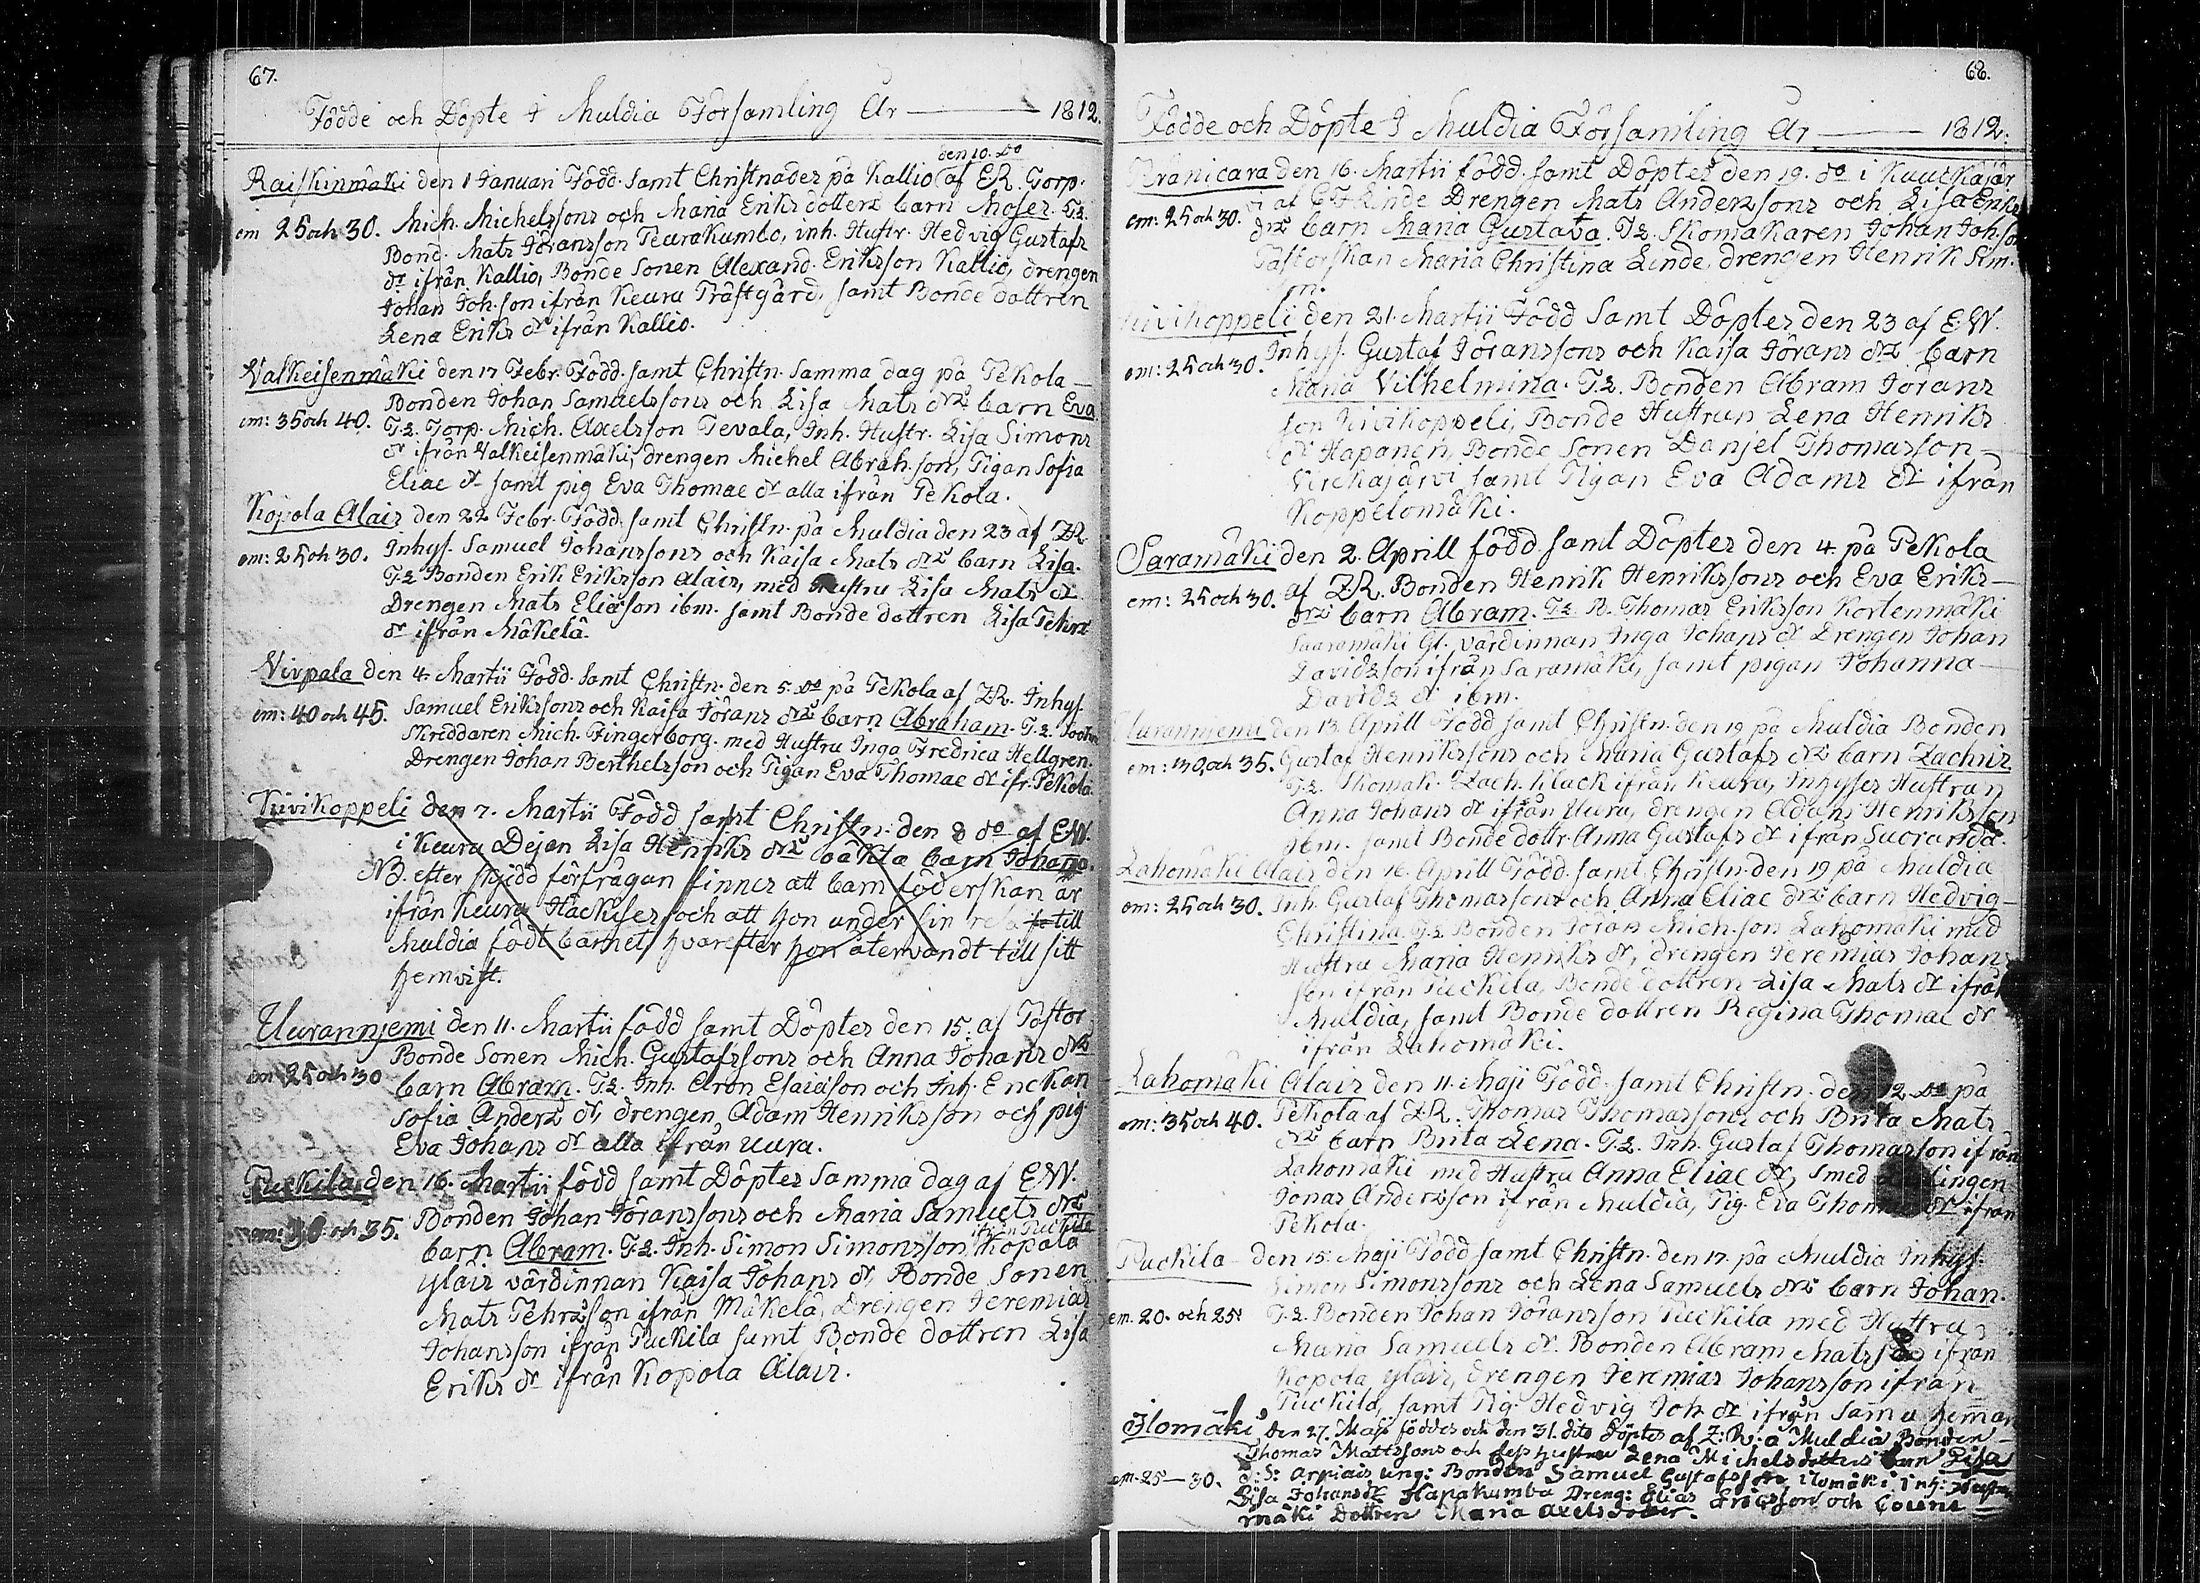 67.
Födde och Döpte I Muldia Församling År — 1812.
den 10. do
Raiskinmäki den 1 Januari Född. samt Christnades på Kallio af E.R. Torp.
em 25 och 30. Mich. Michelssons och Maria Eriks dotters barn Moses. T.2.
Bond. Mats Göransson Teurakumbo, inh. Hustr. Hedvig Gustafs
dr ifrån Kallio, Bonde Sonen Alexand. Eriksson Kallio, drengen
Johan Joh.son ifrån Keuru Prästgård, samt Bonde dottren
Lena Eriks dr ifrån Kallio.
Valkeisenmäki den 17 Febr. Född. samt Christn. samma dag på Pekola —
Bonden Johan Samuelssons och Lisa Mats drs barn Eva
em: 35 och 40. T.2. Torp. Mich. Axelsson Tevala, Inh. Hustr. Lisa Simons
dr ifrån Valkeisenmäki, drengen Michel Abrah.son, Pigan Sofia
Eliae dr samt pig Eva Thomae dr alla ifrån Pekola.
Kopola Alais den 22 Febr. Född. samt Christn. på Muldia den 23 af Z.R.
em: 25 och 30. Inhys. Samuel Johanssons och Kaisa Mats drs barn Lisa.
T.2 Bonden Erik Eriksson alais, med Hustru Lisa Mats dr
Drengen Mats Eliæson ibm. samt Bonde dottren Lisa Pehrs
dr ifrån Mäkelä.
Vivpala den 4. Martii Född. samt Christn. den 5. do på Pekola af Z.R. Inhys.
em: 40 och 45. Samuel Erikssons och Kaisa Görans drs barn Abraham. T.2.
Skreddaren Mich. Fingerborg. med Hustru Inga Fredrica Hellgren.
Drengen Johan Berthelsson och Pigan Eva Thomae dr ifr. Pekola.
Kivikoppeli den 7. Martii Född samt Christn. den 8 do af E.W.
i Keuru Dejan Lisa Henriks drs oäkta barn Johanna.
NB. efter skjedd förfrågan finnes att barn föderskan är
ifrån Keuru Häckises och att hon under sin resa till
Muldia födt barnet, hvarefter hon återvandt till sitt
hemvist.
Uuranniemi den 11. Martii född samt Döptes den 15. af Pastor
Bonde Sonen Mich. Gustafssons och Anna Johans drs
em 25 och 30 barn Abram. T.2. Inh. Aron Esaiæson och Inh. Enckan
Sofia Anders dr, drengen Adam Henriksson och pig
Eva Johans dr alla ifrån Uura.
Puckila den 16. Martii född samt Döptes Samma dag af E.W.
em: 30 och 35. Bonden Johan Göranssons och Maria Samuels drs
ifrån Puckila
barn Abram. T.2. Inh. Simon Simonsson, Kopola
yläis värdinnan Kaisa Johans dr, Bonde Sonen
Mats Pehrsson ifrån Mäkelä, Drengen Jeremias
Johansson ifrån Puckila samt Bonde dottren Lisa
Eriks dr ifrån Kopola Alais.
68.
Födde och Döpte I Muldia Församling År — 1812.
den 16. Martii född. samt Döptes den 19. do i Kuuckajär
vi af C.F. Linde Drengen Mats Anderssons och Lisa Eriks
em: 25 och 30. drs barn Maria Gustava. T.2. Skomakaren Johan Joh.son
Pastorskan Maria Christina Linde, drengen Henrik Sim.
Kivikoppeli den 21. Martii Född samt Döptes den 23 af E.W.
em: 25 och 30. Inhys. Gustaf Göranssons och Kaisa Görans drs barn
Maria Vilhelmina. T.2. Bonden Abram Görans
son Kivikoppeli, Bonde Hustrun Lena Henriks
dr Hapanen, Bonde Sonen Danjel Thomasson —
Virckajärvi samt Pigan Eva Adams dr ifrån
Koppelomäki.
Saramäki den 2. Aprill född samt Döptes den 4. på Pekola
em: 25 och 30. af Z.R. Bonden Henrik Henrikssons och Eva Eriks —
drs barn Abram. T.2. B. Thomas Eriksson Kortenmäki
Saaramäki Gl. värdinnan Inga Johans dr Drengen Johan
Davidsson ifrån Saramäki, samt pigan Johanna —
Davids dr ibm.
Uuranniemi den 13. Aprill Född samt Christn. den 19 på Muldia Bonden
em: 30 och 35. Gustaf Henrikssons och Maria Gustafs drs barn Zachris
T.2. Skomak. Zach. Klack ifrån Keuru, Inhyses Hustrun
Anna Johans dr ifrån Uura, drengen Adam Henriksson
ibm. samt Bonde dottr. Anna Gustafs dr ifrån Suoranda.
Lahomäki Alais den 16. Aprill Född samt Christn. den 19 på Muldia
em: 25 och 30. Inh. Gustaf Thomassons och Anna Eliae drs barn Hedvig —
Christina. T.2. Bonden Göran Mich.son Lahomäki med
Hustru Maria Henriks dr, drengen Jeremias Johans
son ifrån Puckila, Bonde dottren Lisa Mats dr ifrån
Muldia, samt Bonde dottren Regina Thomae dr
ifrån Lahomäki.
Lahomäki Alais den 11. Maji Född. samt Christn. den 12 do på
em: 35 och 40. Pekola af Z.R. Thomas Thomassons och Brita Mats
drs barn Brita Lena. T.2. Inh. Gustaf Thomasson ifrån
Lahomäki med Hustru Anna Eliae dr, smed
Jonas Andersson ifrån Muldia, Pig. Eva Thomae dr ifrån
Pekola.
Puckila den 15. Maji Född samt Christn. den 17. på Muldia Inhys.
Simon Simonssons och Lena Samuels drs barn Johan.
em. 20. och 25. T.2. Bonden Johan Göransson Puckila med Hustru
Maria Samuels dr. Bonden Abram Matsson ifrån
Kopola yläis, drengen Jeremias Johansson ifrån
Puckila, samt Pig. Hedvig Joh. dr ifrån samma hemman
Ilomäki den 27. Maji föddes och den 31. dito döptes af Z: R: a Muldia Bonden
Thomas Mattssons och dess hustru Lena Michelsdotters barn Lisa
em. 25—30. ung: Bonden Samuel Gustafsson Ilomäki Inh: Hustrun
Lisa Johansdr Hapakumbu Dreng: Elias Ericsson och
mäki Dottren Maria Axelsdotter.